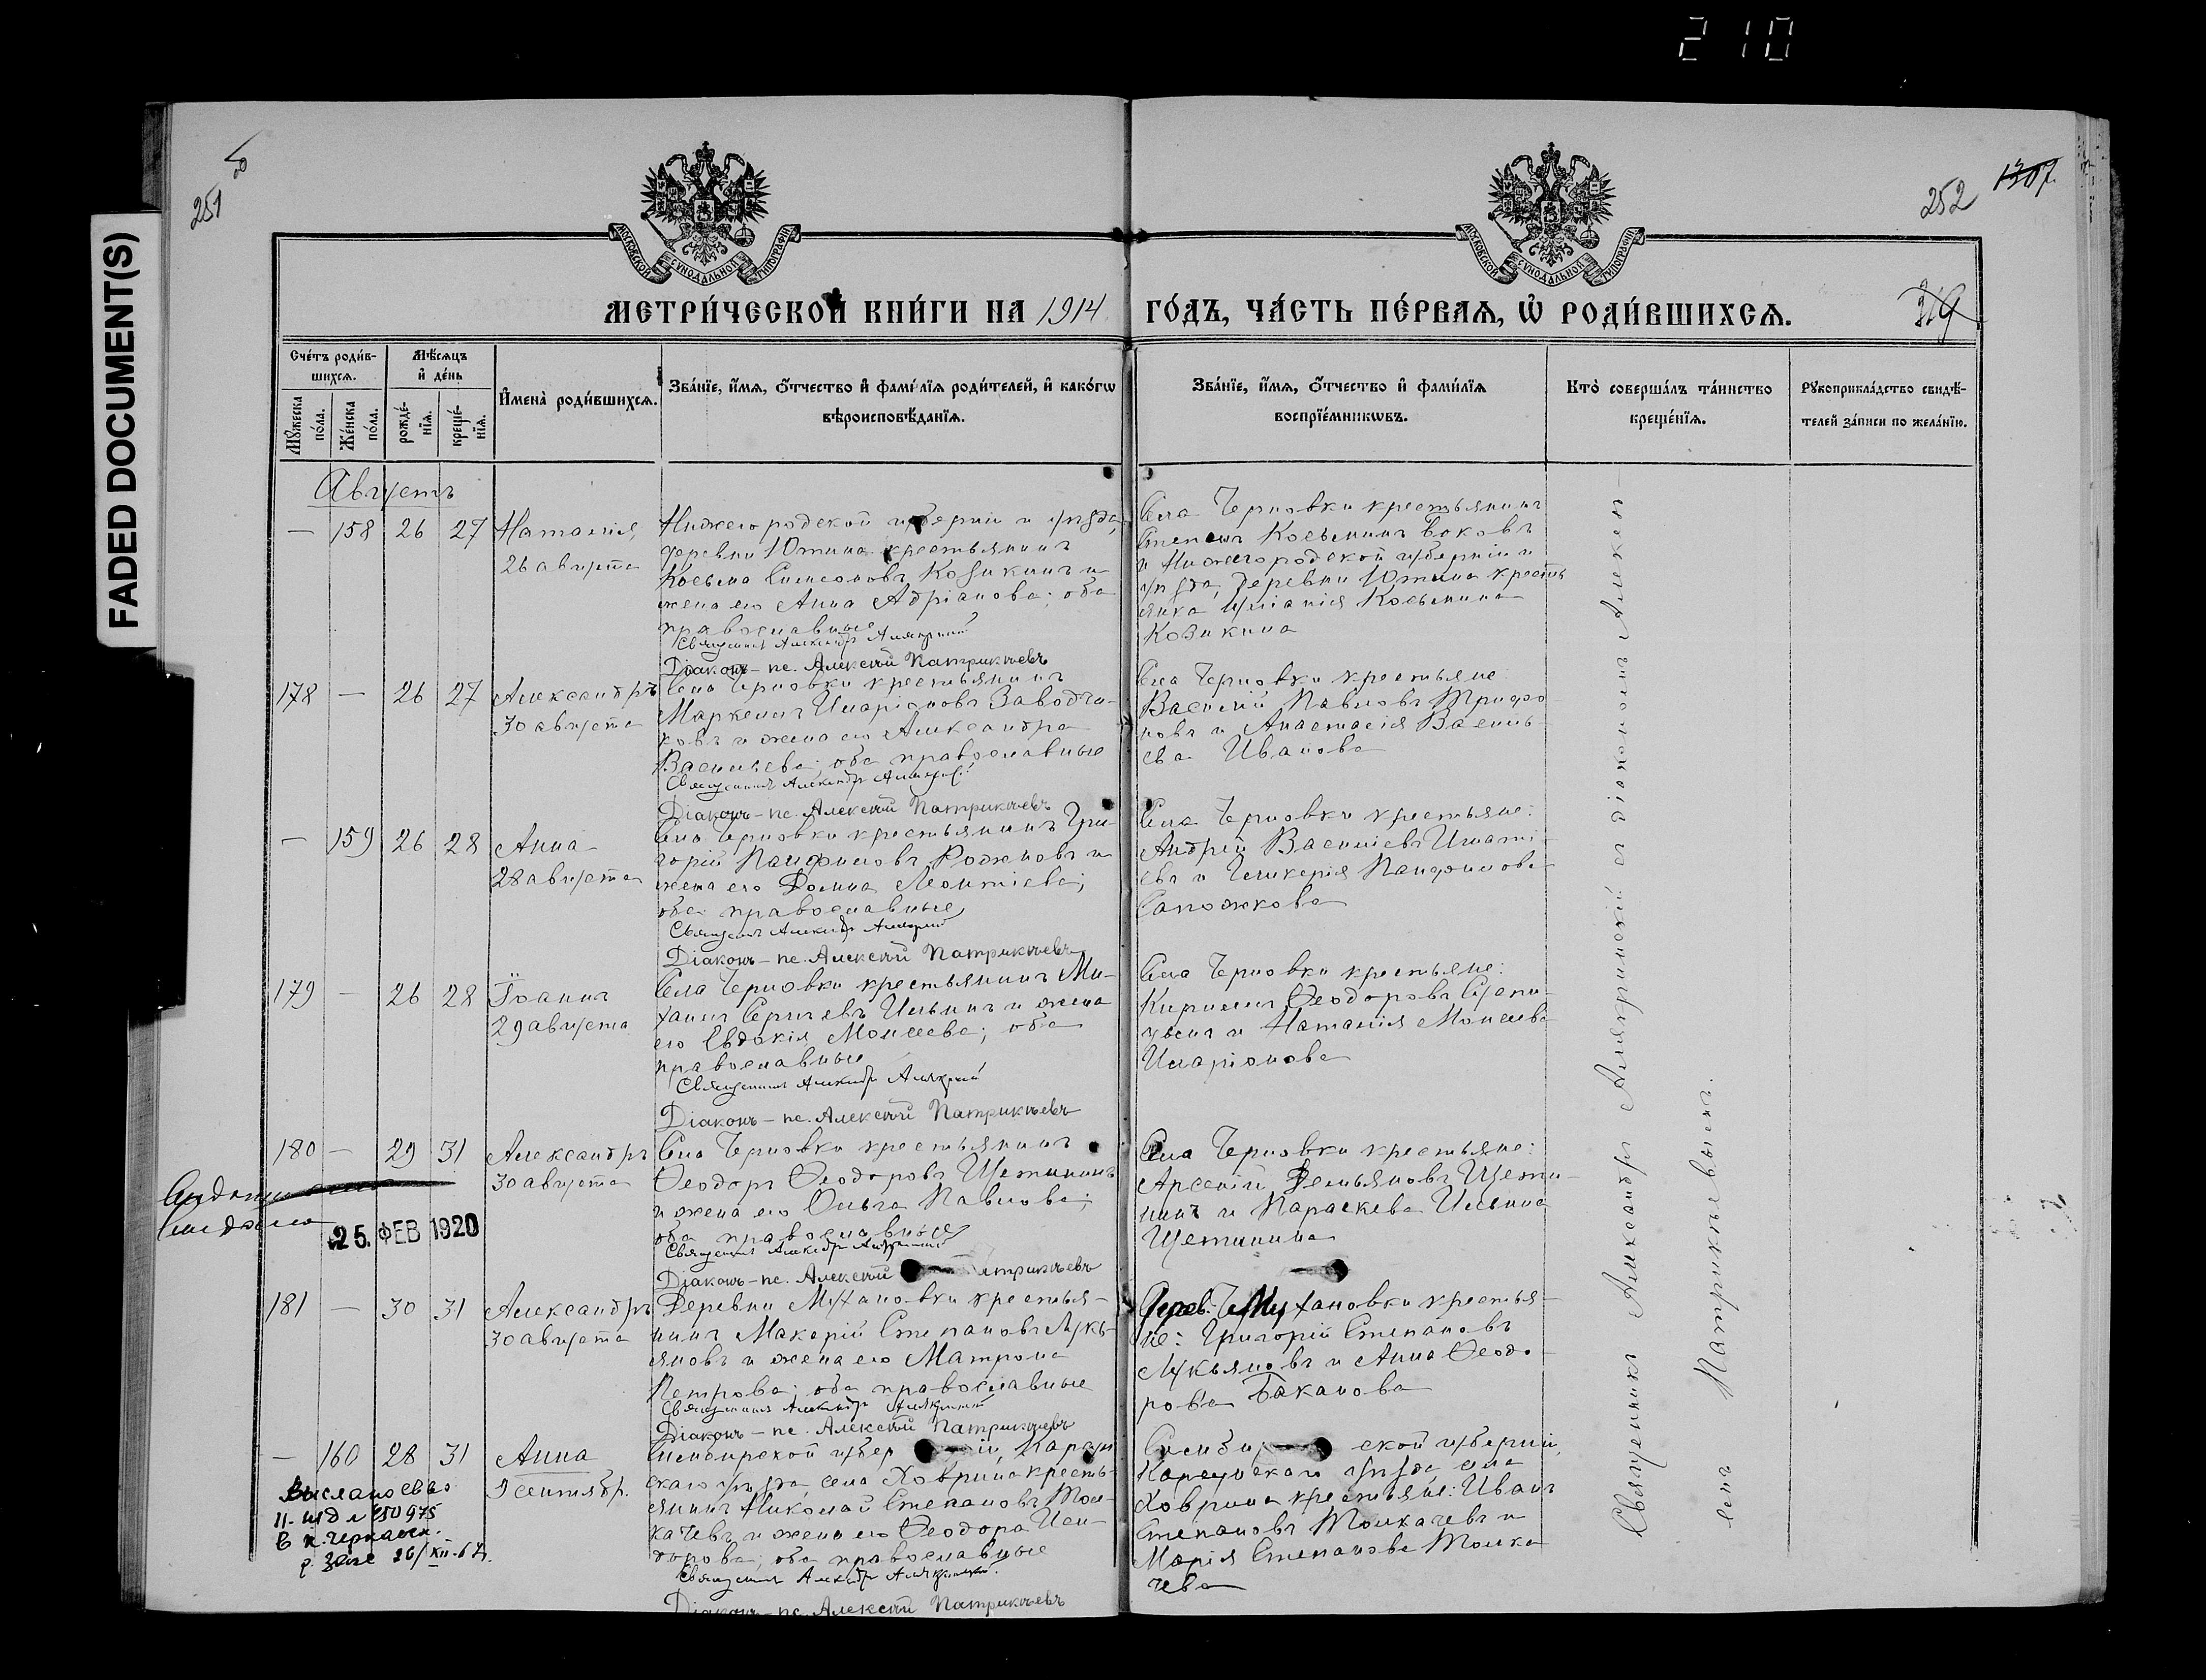 210
FADED DOCUMENT(S)
251
252
1307.
319
МОСКОВСКОЙ СУНОДАЛЬНОЙ ТИПОГРАФІИ
МОСКОВСКОЙ СУНОДАЛЬНОЙ ТИПОГРАФІИ
МЕТРИ́ЧЕСКОЙ КНИ́ГИ НА 1914 ГО́ДЪ, ЧА́СТЬ ПЕ́РВАѦ, Ѡ҆ РОДИ́ВШИХСѦ.
Сче́тъ роди́в-
шихсѧ.
Мꙋ́жеска по́ла.
Же́нска по́ла.
Мѣ́сѧцъ
и҆ де́нь
рожде́-
нїѧ.
креще́-
нїѧ.
И҆мена̀ роди́вшихсѧ.
Зва́нїе, и҆́мѧ, ѻ҆́тчество и҆ фами́лїѧ роди́телей, и҆ како́гѡ
вѣроисповѣ́данїѧ.
Зва́нїе, и҆́мѧ, ѻ҆́тчество и҆ фами́лїѧ
воспрїе́мникѡвъ.
Кто̀ соверша́лъ та́инство
креще́нїѧ.
Рꙋкоприкла́дство свидѣ́-
телей за́писи по жела́нїю.
Августъ
— 158 26 27 Наталія,
26 августа
Нижегородской губерніи и уѣзда,
деревни Ютина крестьянинъ
Косьма Симеоновъ Козикинъ и
жена его Анна Адріанова; оба
православные
Священникъ Александръ Алякринскій
Діаконъ-пс. Алексѣй Патрикѣевъ
Села Черновки крестьянинъ
Степанъ Косьминъ
и Нижегородской губерніи и
уѣзда, деревни Ютина кресть
янка Косьмина
Козикина
178 — 26 27 Александръ
30 августа
Села Черновки крестьянинъ
Маркеллъ Иларіоновъ Заводчи-
ковъ и жена его Александра
Васильева; оба православные
Священникъ Александръ Алякринскій
Діаконъ-пс. Алексѣй Патрикѣевъ
Села Черновки крестьяне:
Василій Павловъ Трифо
новъ и Анастасія Василь-
ева Иванова
— 159 26 28 Анна
28 августа
Села Черновки крестьянинъ Гри-
горій Панфиловъ Рожновъ и
жена его Домна Леонтіева;
оба православные
Священникъ Александръ Алякринскій
Діаконъ-пс. Алексѣй Патрикѣевъ
Села Черновки крестьяне:
Андрей Васильевъ Игнаті-
евъ и Гликерія Панфилова
Сапожкова
179 — 26 28 Іоаннъ
29 августа
Села Черновки крестьянинъ Ми-
хаилъ Сергѣевъ Ильинъ и жена
его Евдокія Моисеева; оба
православные
Священникъ Александръ Алякринскій
Діаконъ-пс. Алексѣй Патрикѣевъ
Села Черновки крестьяне:
Кириллъ Ѳеодоровъ
и Наталія Моисеева
Иларіонова
180 — 29 31 Александръ
30 августа
Села Черновки крестьянинъ
Ѳеодоръ Ѳеодоровъ Щетининъ
и жена его Ольга Павлова;
оба православные
Священникъ Александръ Алякринскій
Діаконъ-пс. Алексѣй Патрикѣевъ
Села Черновки крестьяне:
Арсеній Демьяновъ Щети-
нинъ и Параскева Ильина
Щетинина
25. ФЕВ 1920
181 — 30 31 Александръ
30 августа
Деревни Мухановки крестья-
нинъ Макарій Степановъ Лукь-
яновъ и жена его Матрона
Петрова; оба православные
Священникъ Александръ Алякринскій
Діаконъ-пс. Алексѣй Патрикѣевъ
Дерев. Мухановки крестья-
не: Григорій Степановъ
Лукьяновъ и Анна Ѳеодо-
рова Баканова
— 160 28 31 Анна
3 сентябр.
Симбирской губерніи, Карсун
скаго уѣзда, села Ховрина кресть-
янинъ Николай Степановъ Тол-
качевъ и жена его Ѳеодора Иси-
дорова; оба православные
Священникъ Александръ Алякринскій.
Діаконъ-пс. Алексѣй Патрикѣевъ
Симбирской губерніи,
Карсунскаго уѣзда села
Ховрина крестьяне: Иванъ
Степановъ Толкачевъ и
Марія Степанова Толка
чева
Выслано св во
II-
в г. Черкасск.
26/XII-
Священникъ Александръ Алякринскій съ діакономъ Алексѣ-
емъ Патрикѣевымъ.